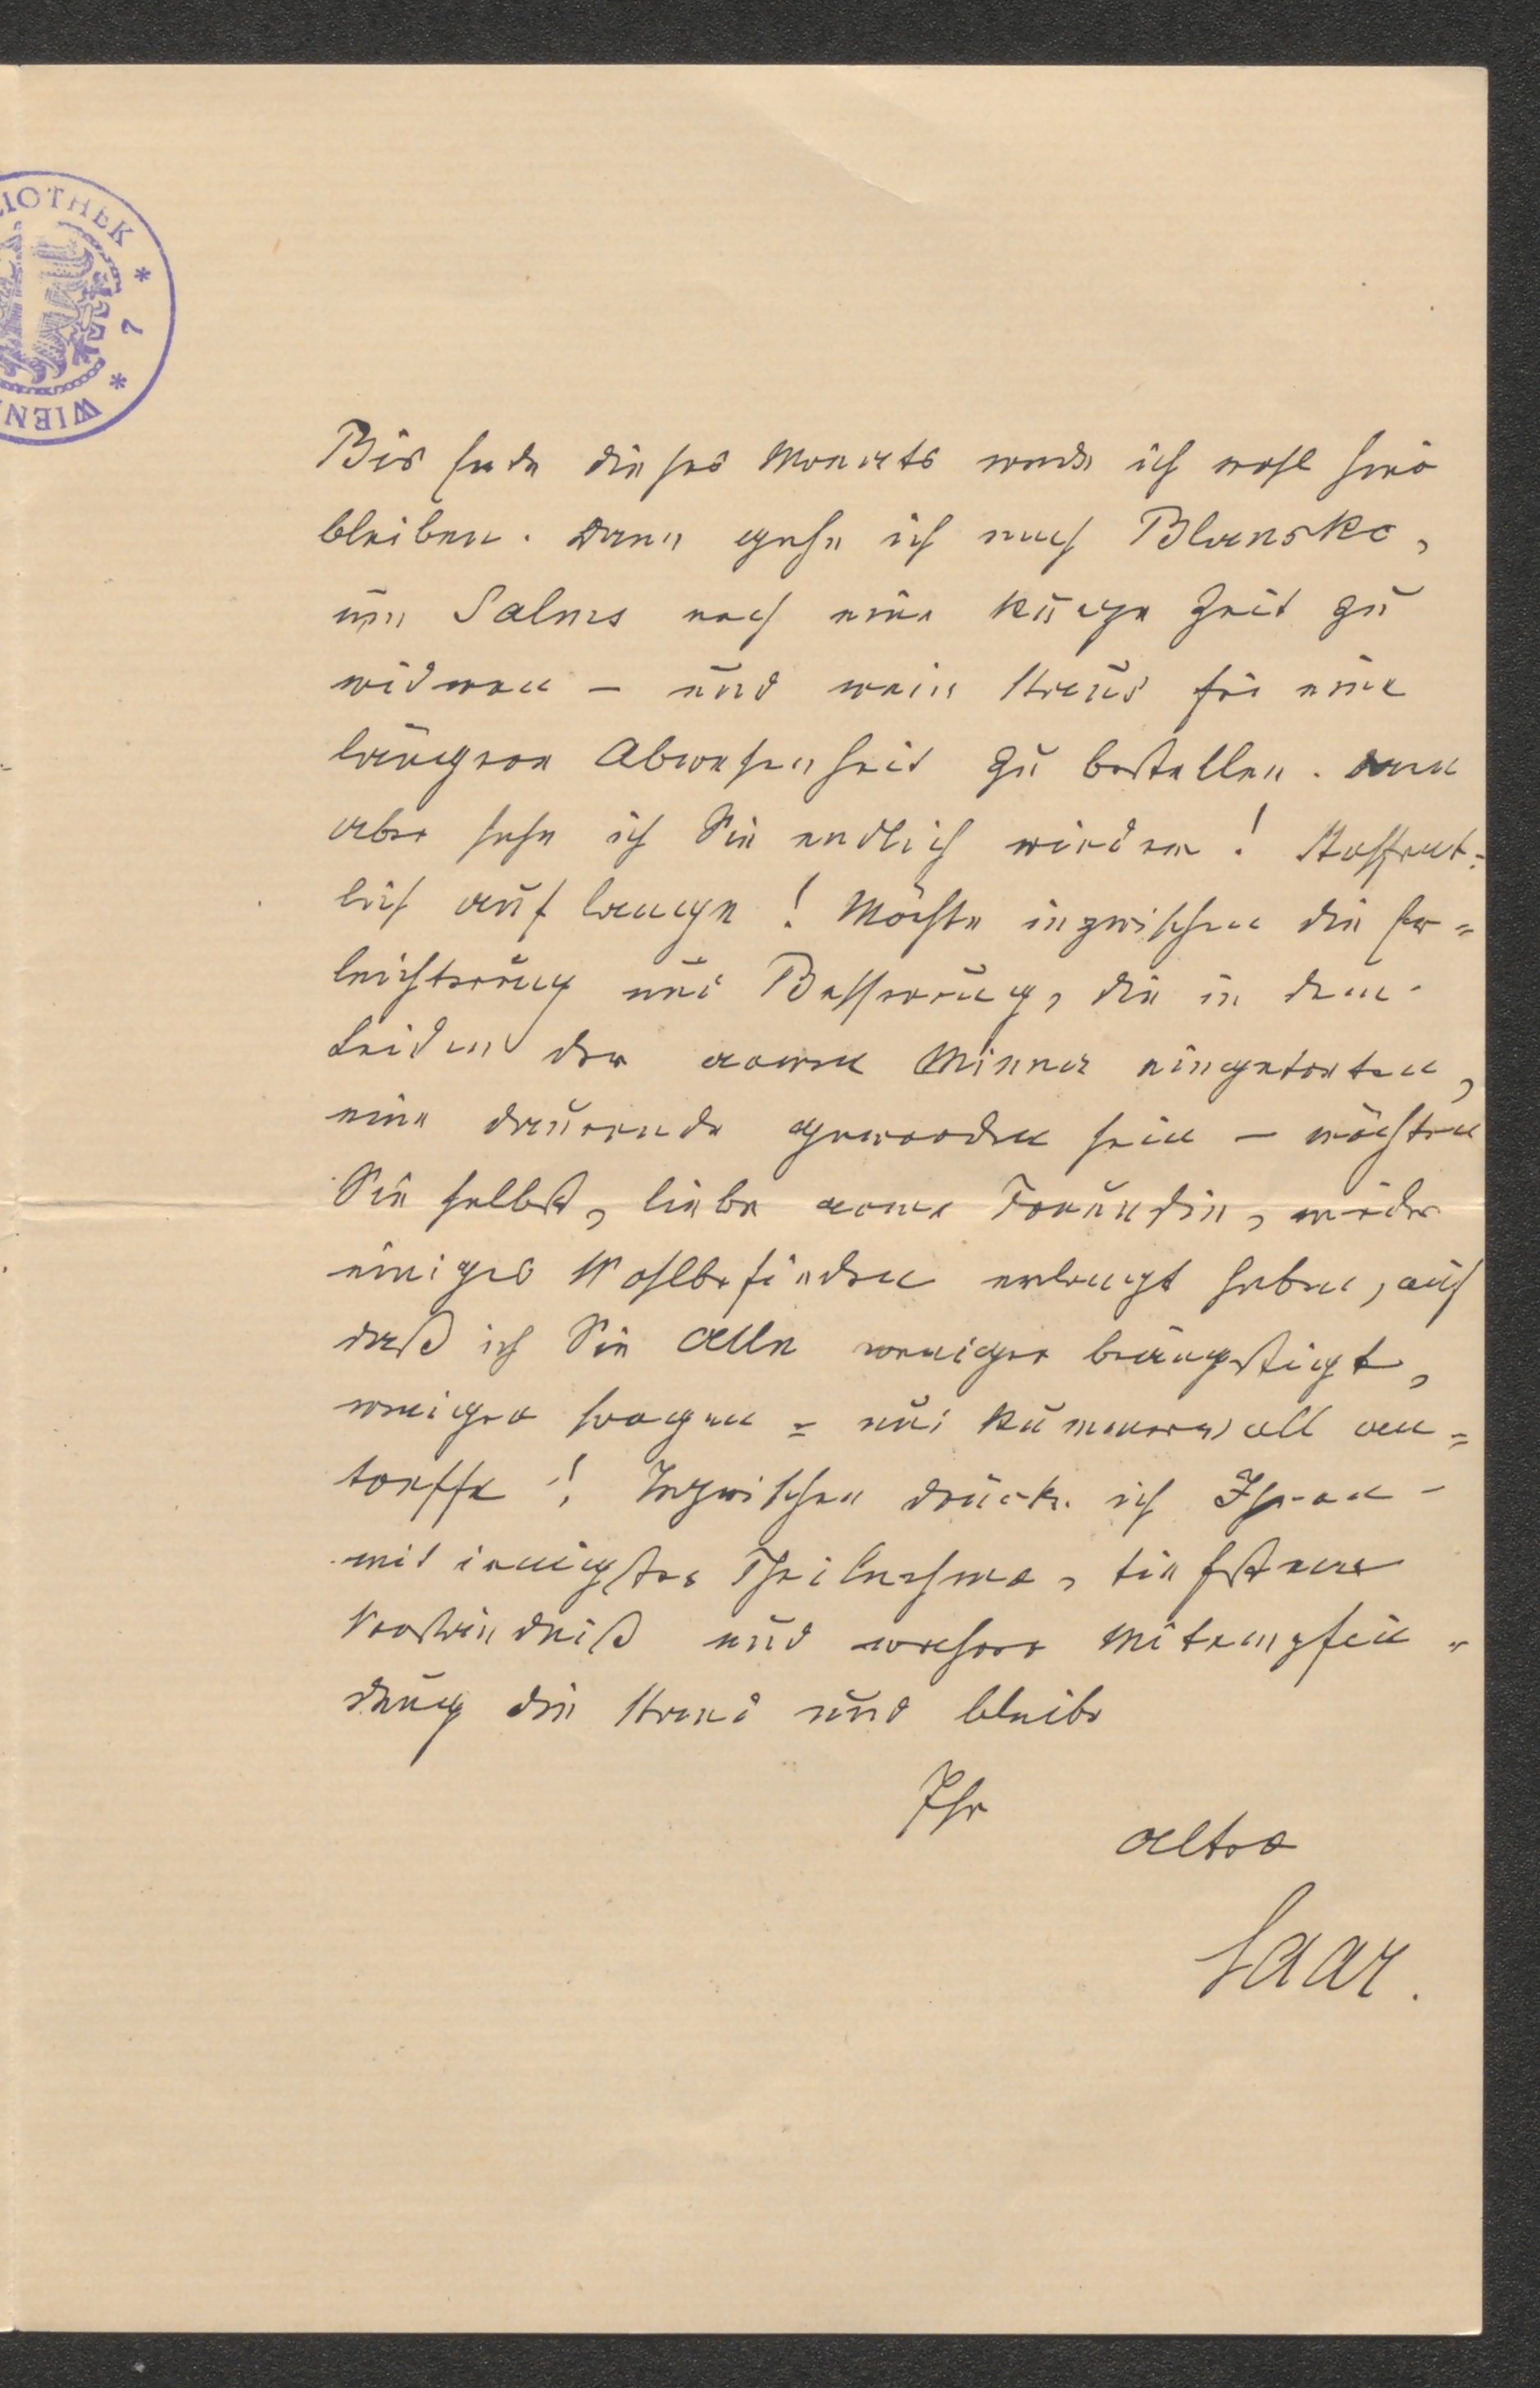 LIOTHEK * 7 * WIEN
Bis Ende dieses Monats werde ich wohl hier
bleiben. Dann gehe ich nach Blansko,
um Salms noch eine kurze Zeit zu
widmen – und mein Haus für eine
längere Abwesenheit zu bestellen. Dann
aber sehe ich Sie endlich wieder! Hoffent=
lich auf lange! Möchte inzwischen die Er=
leichterung und Besserung, die in dem
Leiden der armen Minna eingetreten,
eine dauernde geworden sein – möchten
Sie selbst, liebe arme Freundin, wieder
einiges Wohlbefinden erlangt haben, auf
daß ich Sie Alle weniger beängstigt,
weniger sorgen= und kummervoll an=
treffe! Inzwischen drücke ich Ihnen
mit innigster Theilnahme, tiefstem
Verständniß und wahrer Mitempfin=
dung die Hand und bleibe
Ihr
alter
Saar.